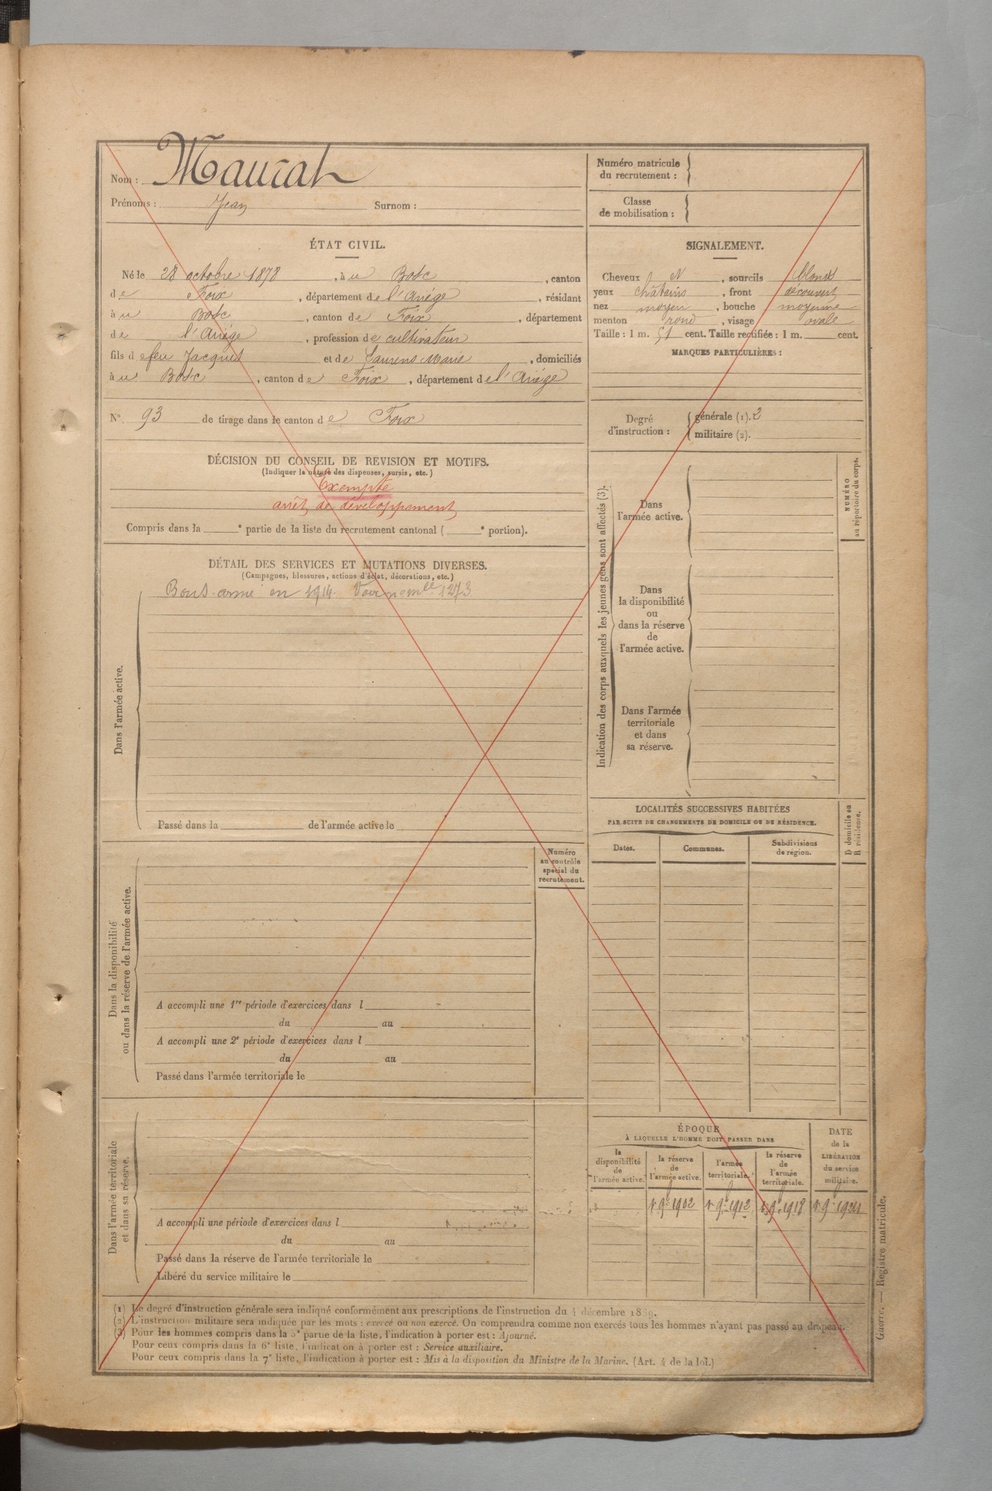 Nom : Maurat
Prénoms : Jean Surnom :
ÉTAT CIVIL.
Né le 28 octobre 1878, à u Bosc, canton
de Foix, département de l'Ariége, résidant
à u Bosc, canton de Foix, département
de l'Ariége, profession de cultivateur
fils d feu Jacques et de Laurens Marie, domiciliés
à u Bosc, canton de Foix, département de l'Ariége
N° 93 de tirage dans le canton de Foix
DÉCISION DU CONSEIL DE REVISION ET MOTIFS.
(Indiquer la nature des dispenses, sursis, etc.)
Exempté
arrêt de développement
Compris dans la ° partie de la liste du recrutement cantonal ( ° portion).
DÉTAIL DES SERVICES ET MUTATIONS DIVERSES.
(Campagnes, blessures, actions d'éclat, décorations, etc.)
en 1914. Voir 1273
Dans l'armée active.
Passé dans la de l'armée active le
Numéro
au contrôle
spécial du
recrutement.
Dans la disponibilité
ou dans la réserve de l'armée active.
A accompli une 1re période d'exercices dans l
du au
A accompli une 2e période d'exercices dans l
du au
Passé dans l'armée territoriale le
Dans l'armée territoriale
et dans sa réserve.
A accompli une période d'exercices dans l
du au
Passé dans la réserve de l'armée territoriale le
Libéré du service militaire le
Numéro matricule
du recrutement :
Classe
de mobilisation :
SIGNALEMENT.
Cheveux, sourcils blonds
yeux châtains, front découvert
nez moyen, bouche moyenne
menton rond, visage ovale
Taille : 1 m. cent. Taille rectifiée : 1 m. cent.
MARQUES PARTICULIÈRES :
Degré
d'instruction :
générale (1). 3
militaire (2).
Indication des corps auxquels les jeunes gens sont affectés (3).
Dans
l'armée active.
NUMÉRO
au répertoire du corps.
Dans
la disponibilité
ou
dans la réserve
de
l'armée active.
Dans l'armée
territoriale
et dans
sa réserve.
LOCALITÉS SUCCESSIVES HABITÉES
PAR SUITE DE CHANGEMENTS DE DOMICILE OU DE RÉSIDENCE.
Dates. Communes. Subdivisions
de région.
D domicile ou
R résidence.
ÉPOQUE
À LAQUELLE L'HOMME DOIT PASSER DANS
DATE
de la
LIBÉRATION
du service
militaire.
la
disponibilité
de
l'armée active.
la réserve
de
l'armée active.
l'armée
territoriale.
la réserve
de
l'armée
territoriale.
1er 9bre 1902 1er 9bre 1912 1er 9bre 1918 1er 9bre 1924
(1) Le degré d'instruction générale sera indiqué conformément aux prescriptions de l'instruction du 4 décembre 1889.
(2) L'instruction militaire sera indiquée par les mots : exercé ou non exercé. On comprendra comme non exercés tous les hommes n'ayant pas passé au drapeau.
(3) Pour les hommes compris dans la 5e partie de la liste, l'indication à porter est : Ajourné.
Pour ceux compris dans la 6e liste, l'indication à porter est : Service auxiliaire.
Pour ceux compris dans la 7e liste, l'indication à porter est : Mis à la disposition du Ministre de la Marine. (Art. 4 de la loi.)
Guerre. — Registre matricule.